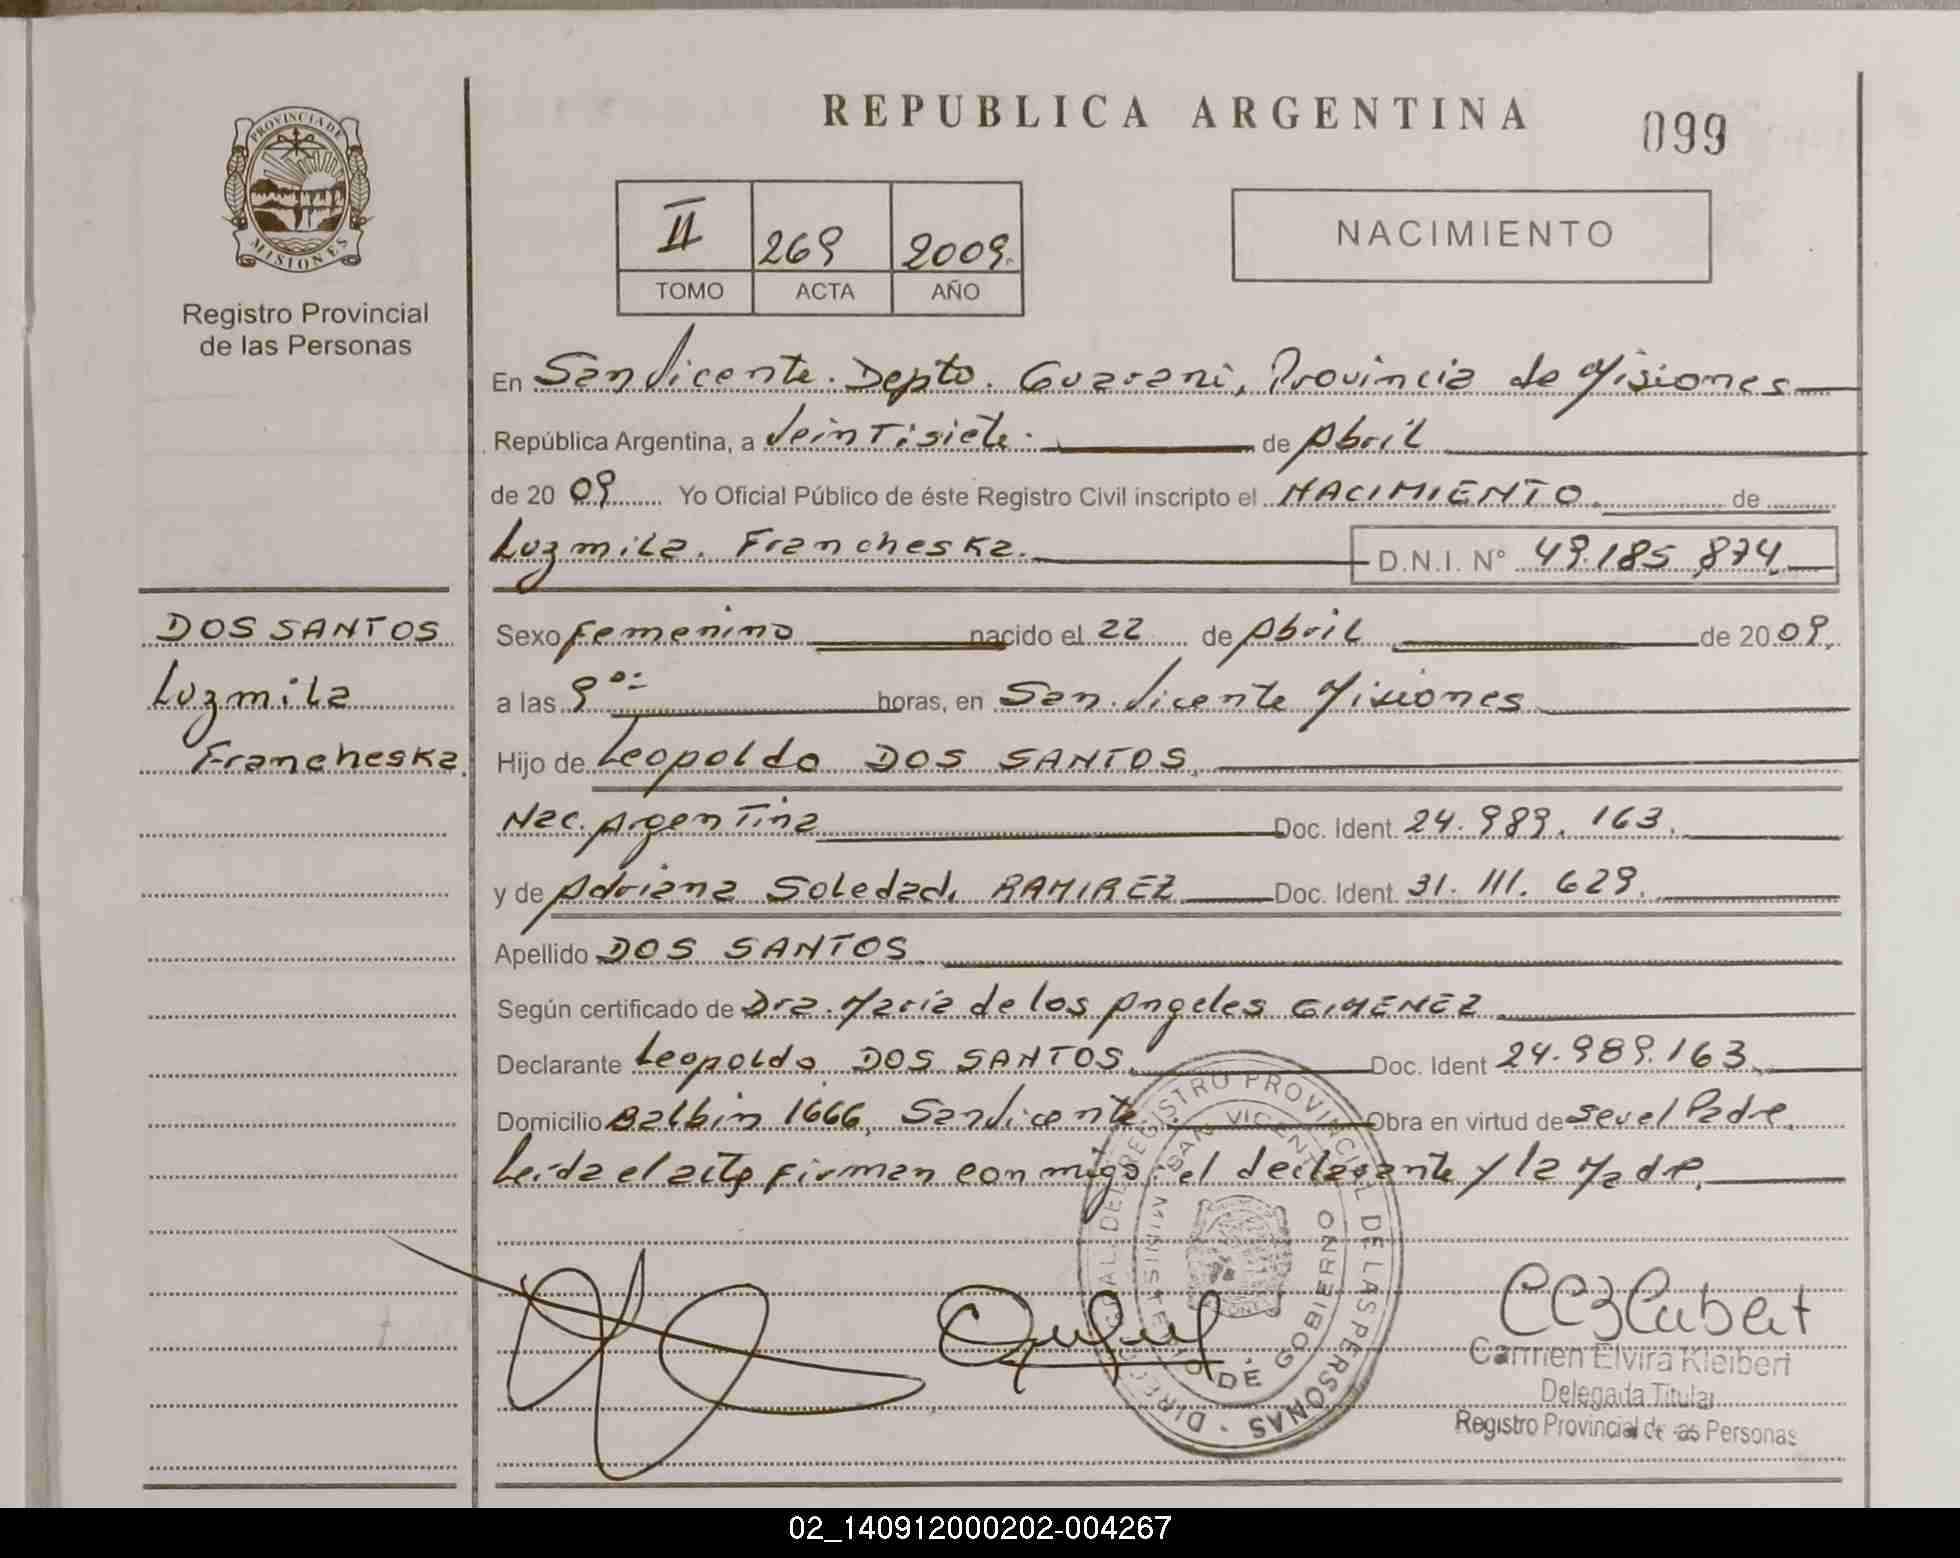 REPUBLICA ARGENTINA
099
PROVINCIA DE
MISIONES
Registro Provincial
de las Personas
II 269 2009.
TOMO ACTA AÑO
NACIMIENTO
En San Vicente. Depto. Guarani, Provincia de Misiones
República Argentina, a Veintisiete. de Abril
de 20 09 Yo Oficial Público de éste Registro Civil inscripto el NACIMIENTO. de
Luzmila. Francheska. D.N.I. N° 49.185.874.
DOS SANTOS
Luzmila
Francheska.
Sexo Femenino nacido el 22 de Abril de 20 09.
a las 9 00= horas, en San Vicente Misiones
Hijo de Leopoldo DOS SANTOS.
Nac. Argentina Doc. Ident. 24.989.163.
y de Adriana Soledad. RAMIREZ Doc. Ident. 31.111.629.
Apellido DOS SANTOS.
Según certificado de Dra. Maria de los Angeles GIMENEZ
Declarante Leopoldo DOS SANTOS. Doc. Ident 24.989.163.
Domicilio Balbin 1666, San Vicente. Obra en virtud de ser el Padre.
Leida el acta firman conmigo: el declarante y la Madre.
DIRECC GRAL. DEL REGISTRO PROVINCIAL DE LAS PERSONAS
SAN VICENTE
MINISTERIO DE GOBIERNO
Carmen Elvira Kleibert
Delegada Titular
Registro Provincial de las Personas
02_140912000202-004267